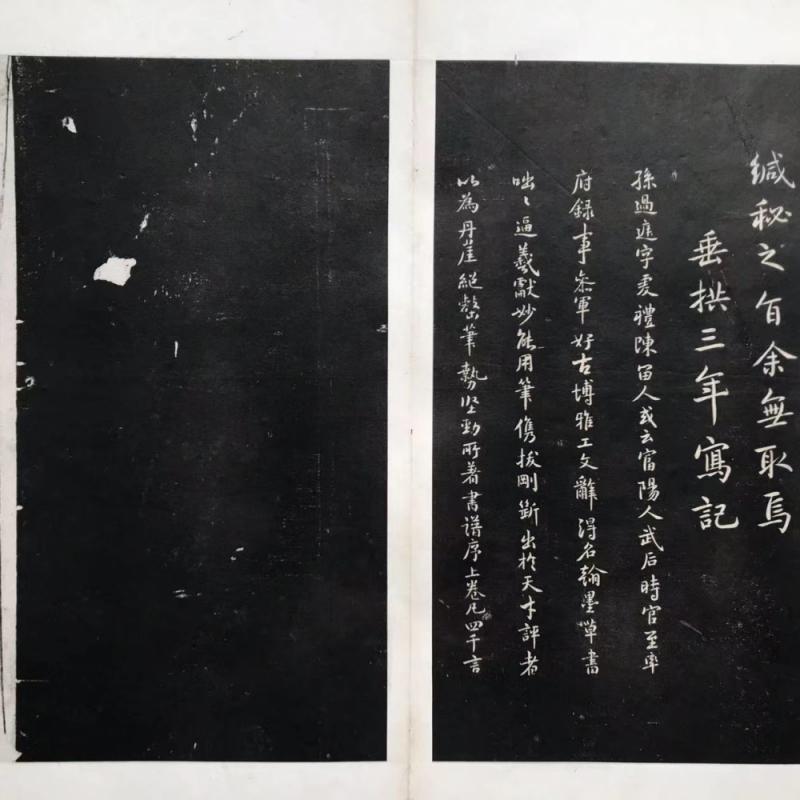 緘秘之旨余無取焉
垂拱三年寫記
孫過庭字虔禮陳留人或云富陽人武后時官至率
府錄事叅軍好古博雅工文辭得名翰墨草書
咄〻逼羲獻妙能用筆儁拔剛斷出於天才評者
以為丹崖絕壑筆勢坚勁所著書譜序上卷凡四千言